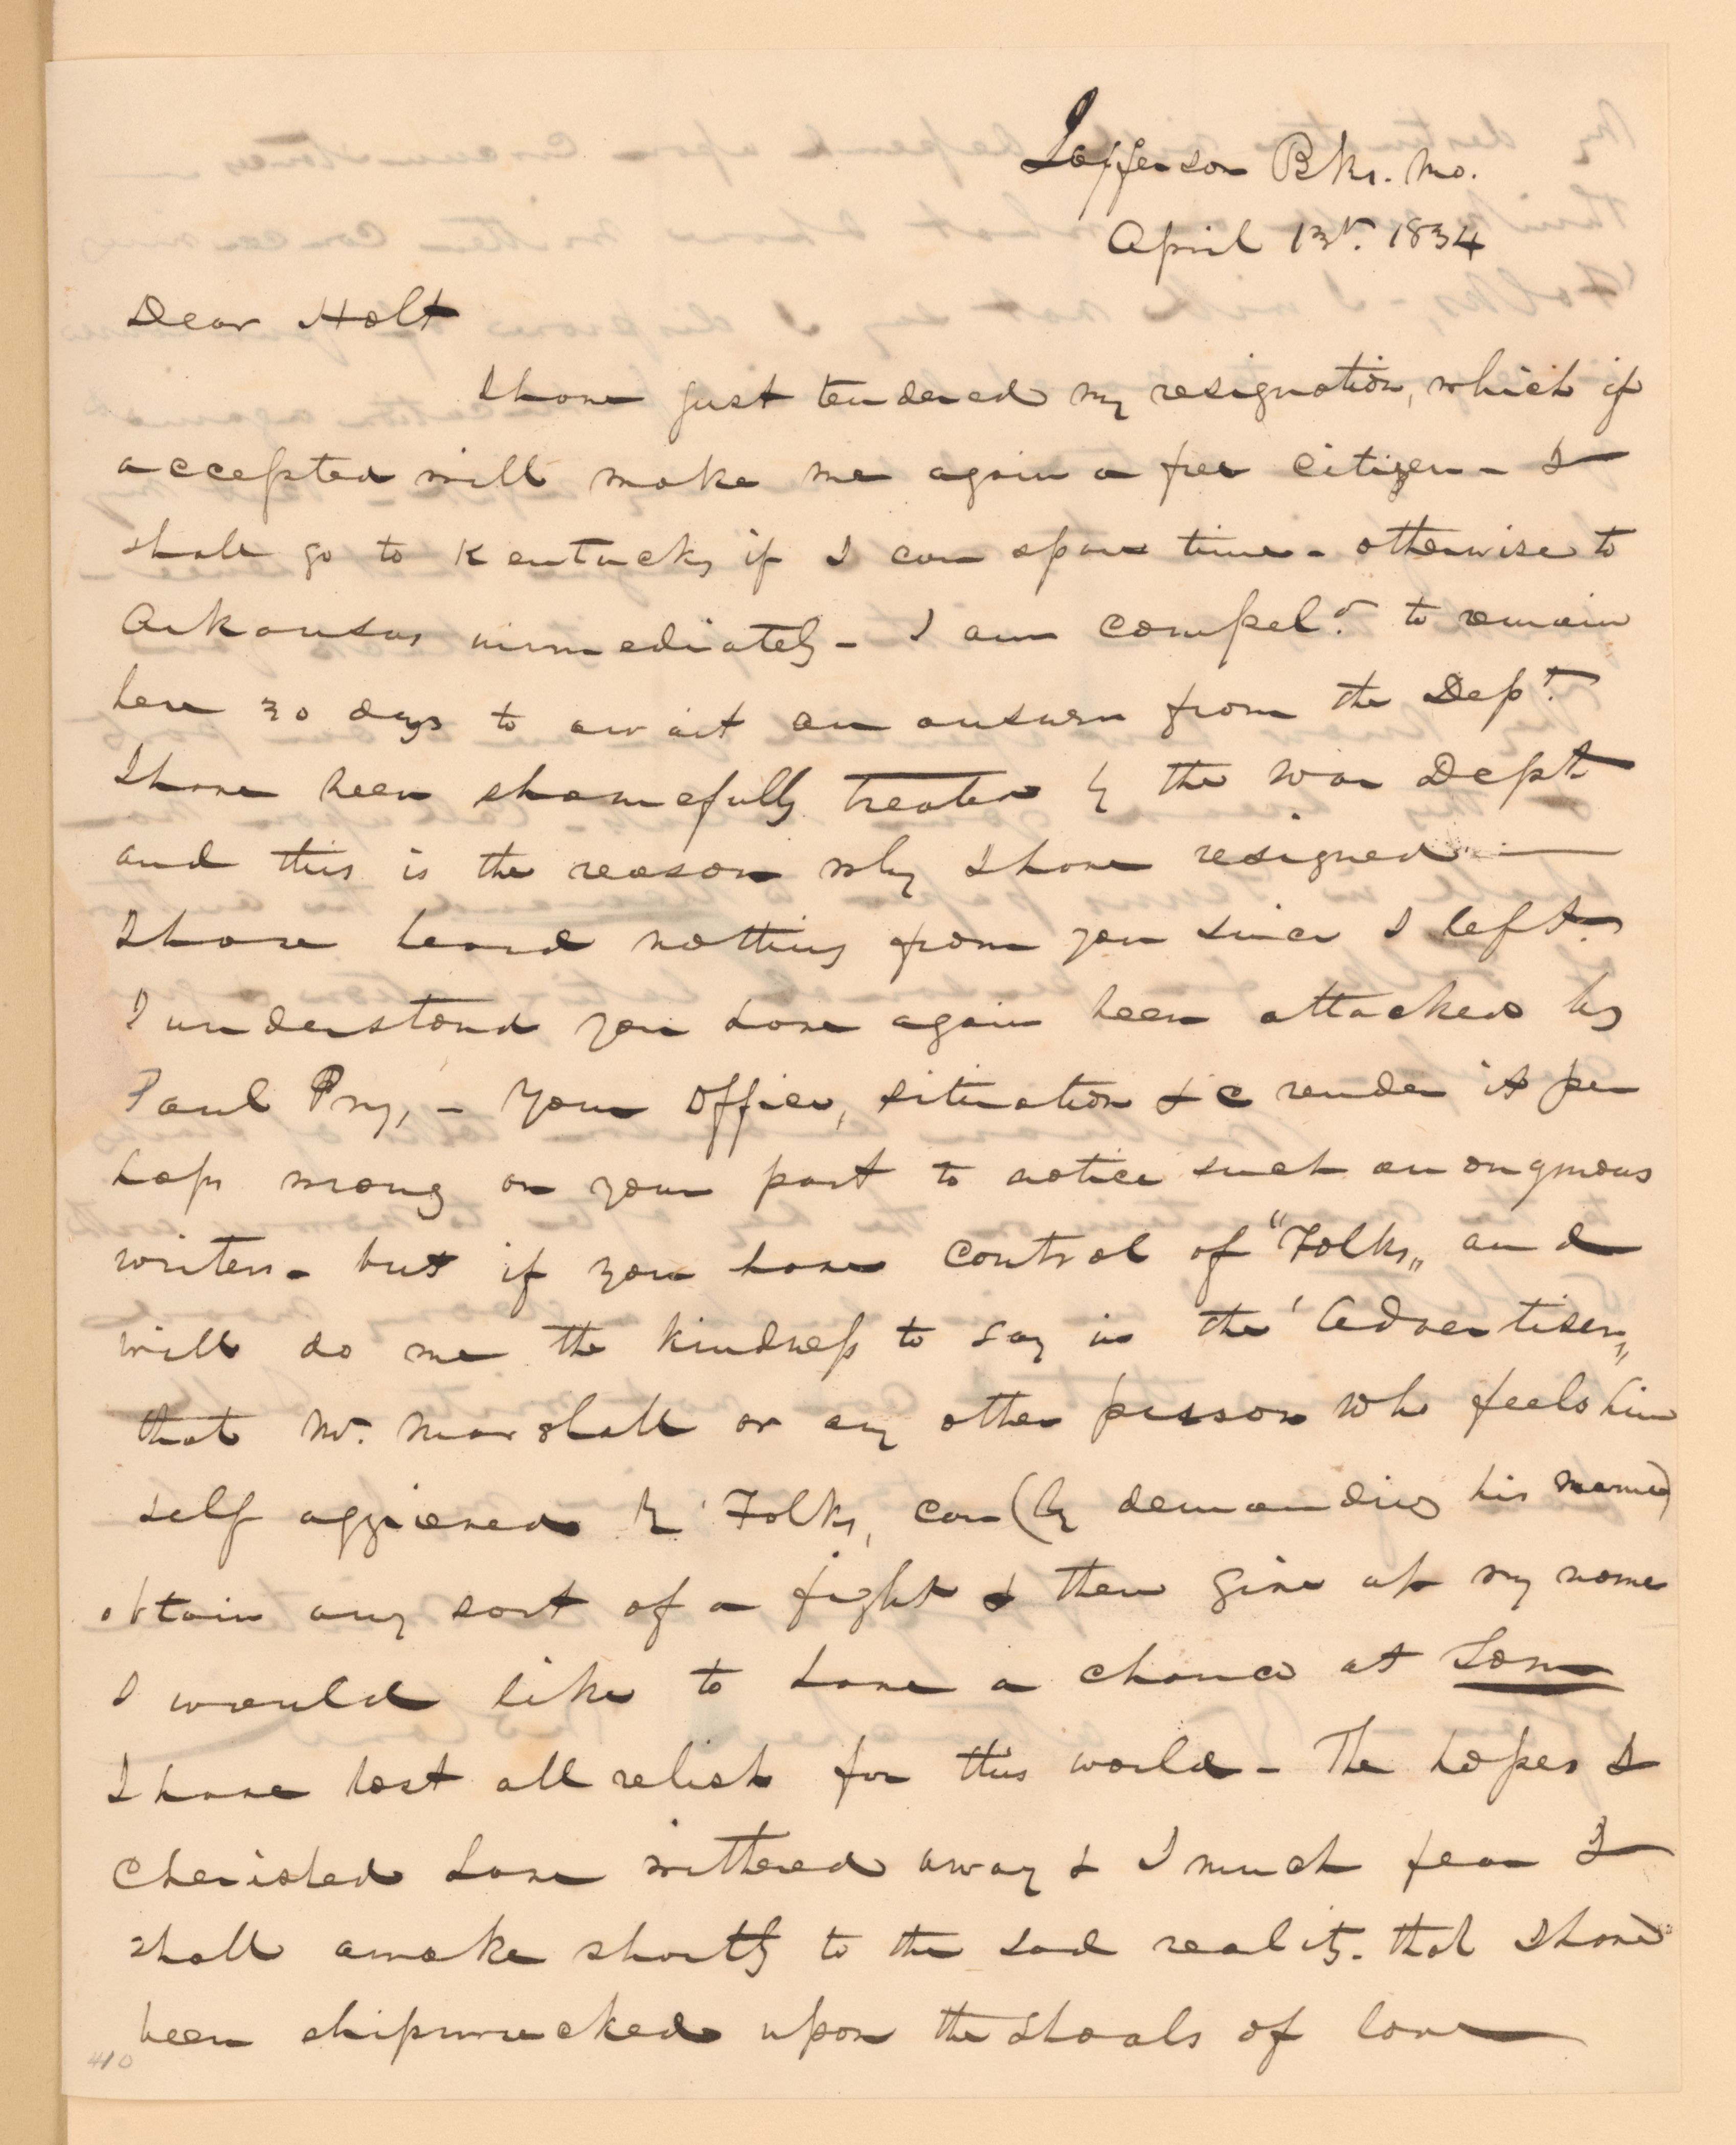 Jefferson Bks. Mo.
April 13th. 1834
Dear Holt
I have just tendered my resignation, which if
accepted will make me again a free citizen - I
shall go to Kentucky if I can spare time - otherwise to
Arkansas immediately - I am compeld. to remain
here 30 days to await an answer from the Dept.
I have been shamefully treated by the War Dept
and this is the reason why I have resigned —
I have heard nothing from you since I left.
I understand you have again been attacked by
Paul Pry, - Your Office, situation &c render it per
haps wrong on your part to notice such anonymous
writers - but if you have control of "Folks" and
will do me the kindness to say in the 'Advertiser"
that Mr. Marshall or any other person who feels him
self aggrieved by 'Folks, can (by demanding his name)
obtain any sort of a fight & then give up my name
I would like to have a chance at Tom
I have lost all relish for this world - The hopes I
cherished have withered away & I much fear I
shall awake shortly to the sad reality. that I have
been shipwrecked upon the shoals of love
410